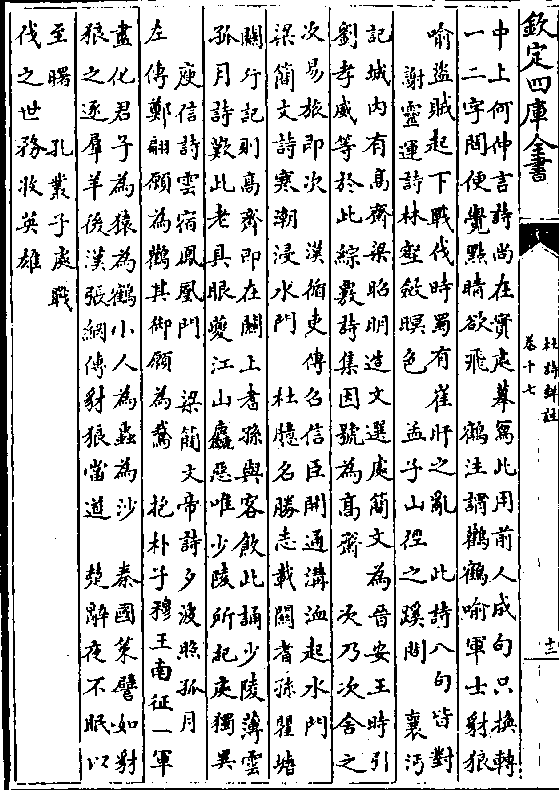 欽定四庫全書
杜詩詳註
卷十七
十二
中上何仲言詩尚在實處摹寫此用前人成句只換轉
一二字間便覺點睛欲飛　鶴注謂鸛鶴喻軍士豺狼
喻盜賊起下戰伐時蜀有崔旰之亂　此詩八句皆對
謝靈運詩林壑斂暝色　孟子山徑之蹊間　襄沔
記城内有高齋梁昭明造文選處簡文為晉安王時引
劉孝威等於此綜覈詩集因號為高齋　次乃次舍之
次易旅即次　漢循吏傳召信臣開通溝洫起水門
梁簡文詩寒潮浸水門　杜臆名勝志載關耆孫瞿塘
關行記則高齋即在關上耆孫與客飲此誦少陵薄雲
孤月詩歎此老具眼夔江山麤惡唯少陵所記處獨異
庾信詩雲宿鳳凰門　梁簡文帝詩夕波照孤月
左傳鄭翩願為鸛其御願為鵞　抱朴子穆王南征一軍
盡化君子為猿為鶴小人為蟲為沙　秦國策譬如豺
狼之逐羣羊後漢張綱傳豺狼當道　楚辭夜不眠以
至曙　孔叢子處戰
伐之世務收英雄